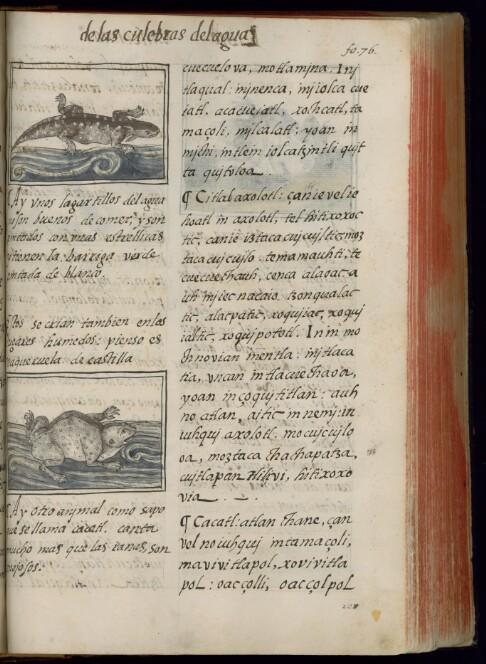 de las culebras del agua
fo. 76.
¶ Ay vnos lagartillos del agua
son buenos de comer, y son
pintados con vnas estrellicas
tienen la barriga verde
pintada de blanco.
Estos se crian tambien en los
lugares humedos: pienso es
de castilla
¶ Ay otro animal como sapo
se llama cacatl. canta
mucho mas que las ranas, son
enojosos.
cuecuelova, motlamina. Inj
tlaqual: injnenca, injiolca cue
iatl, acacuejatl, xolhcatl, ta
maçoli, mjlcalatl: yoan in
mjchi, intlein iolcatzintli qujt
ta qujtoloa.
¶ Citlalaxolotl: çanie velie
hoatl in axolotl, tel
tic, canie
temamauhti, te
cuecuechauh, cenca alaoac, a
nacaio. tzonqualac
tic, alacpatic, xoqujiac, xoquj
ialtic, xoqujpotötl. In in mo
chnovian mentla: injtlaca
tia, vncan in tlacuechaoa,
yoan in çoqujtitlan: auh
no atlan, ajtic in nemj: in
iuhquj axolotl. mocujcujlo
oa, moztaca chachapatza,
cujtlapan
via
¶ Cacatl: atlan chane, çan
vel no iuhquj in tamaçoli,
mavivitlapol, xovivitla
pol: oacçolli, oacçolpol